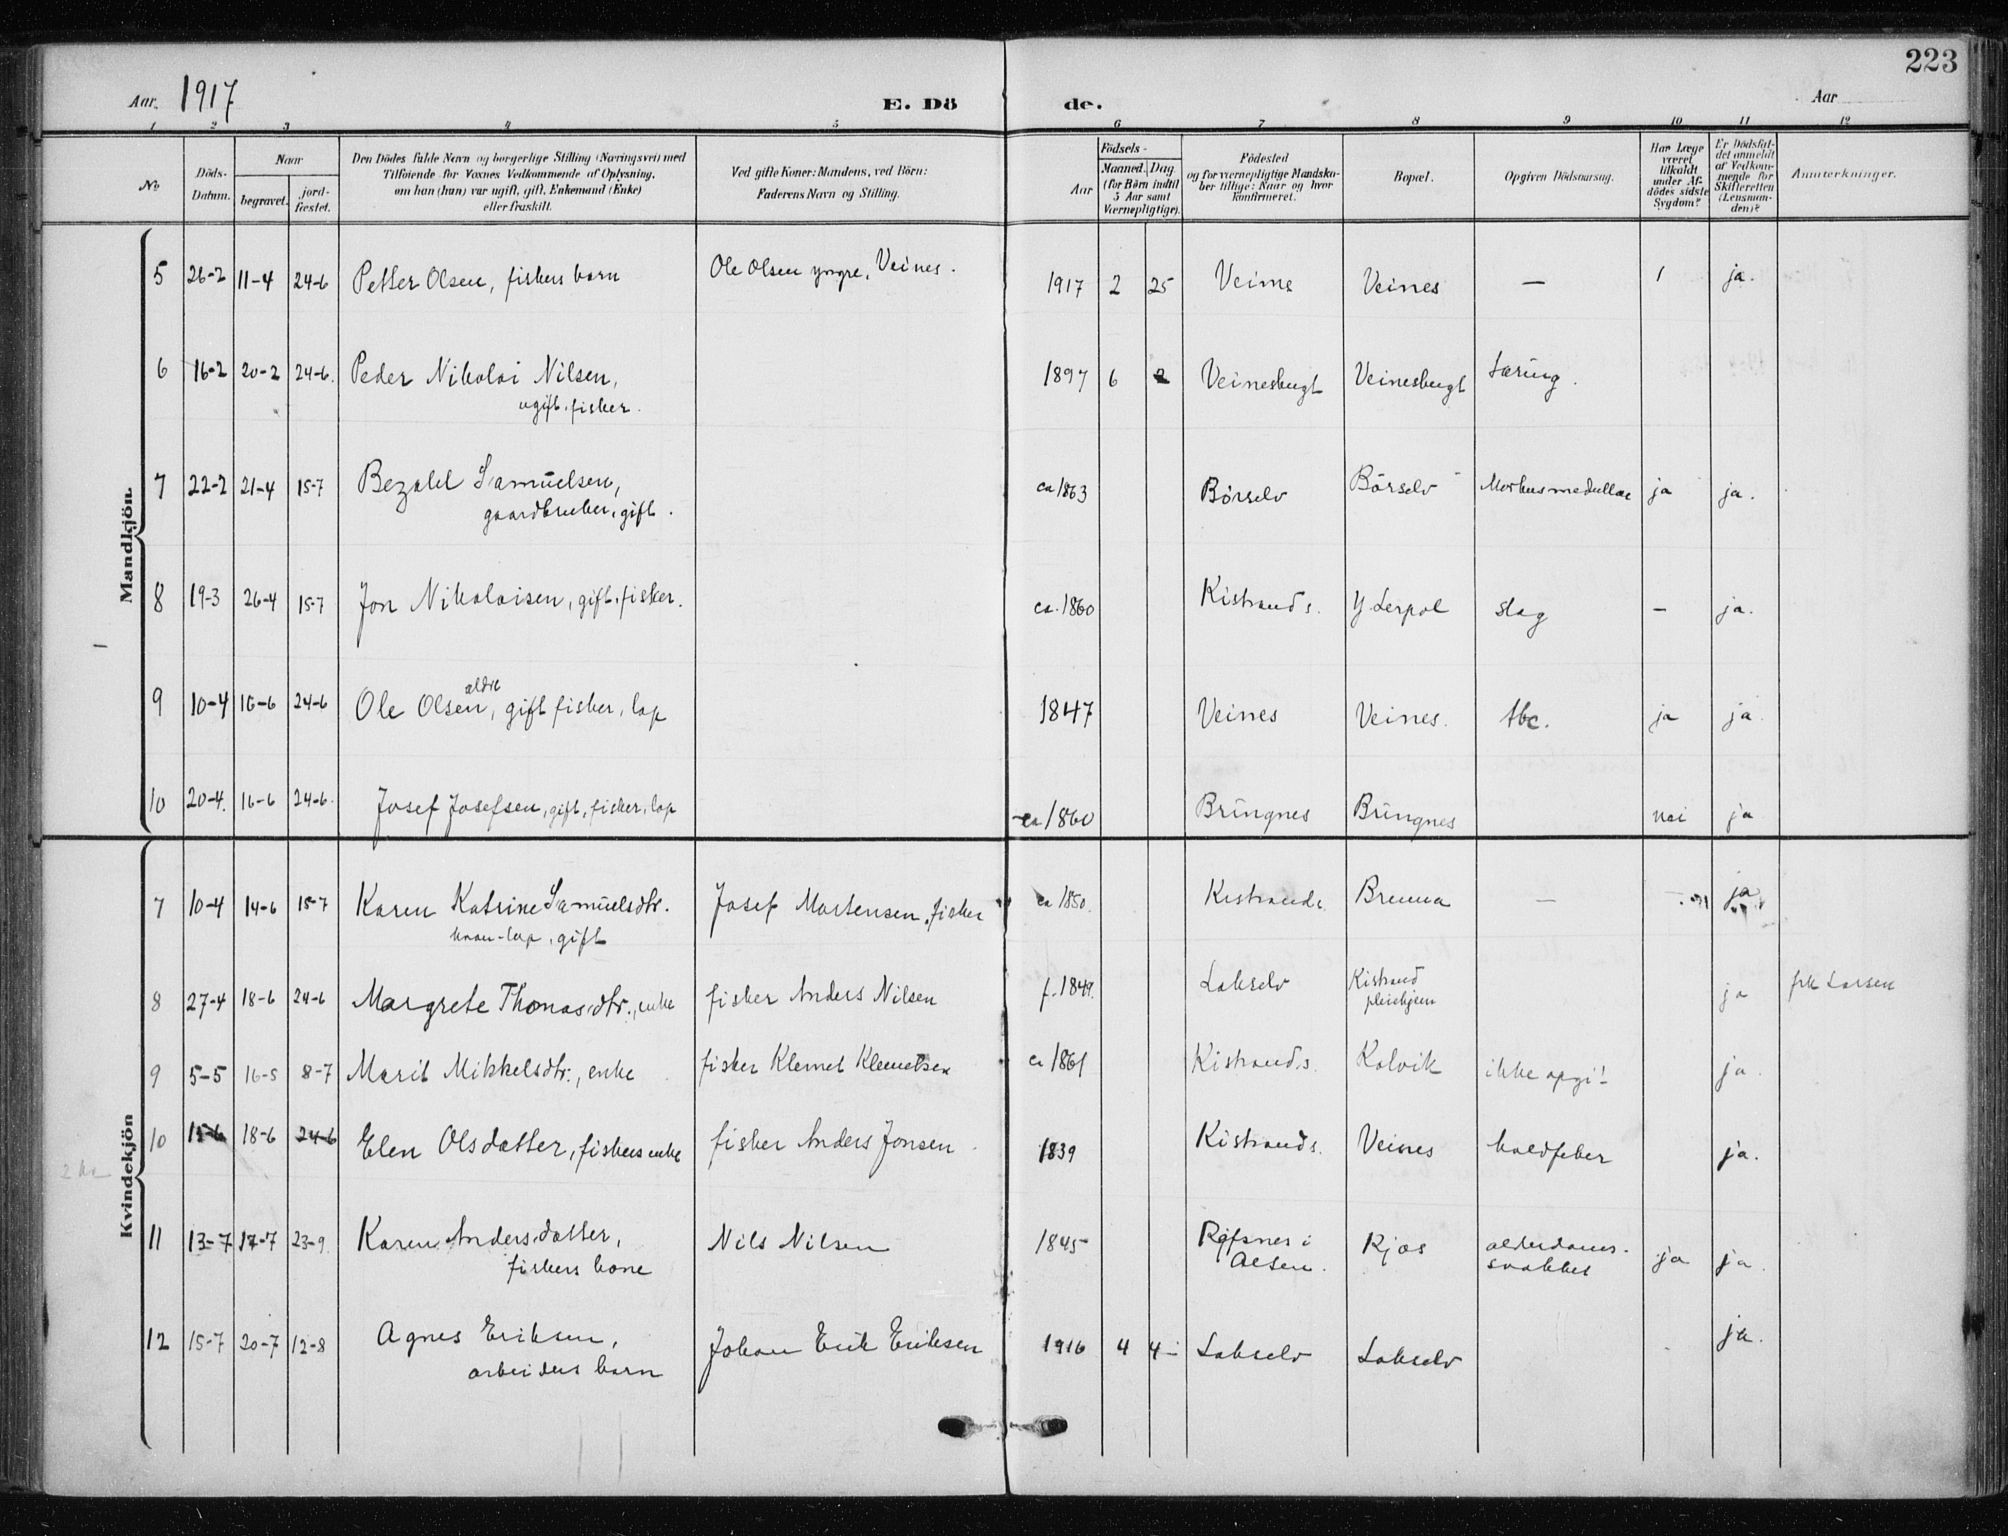 223
Aar. 1917
E. Dö de.
Aar
1 2 3 4 5 6 7 8 9 10 11 12
No
Döds-
Datum.
Naar
begravet.
jord-
fæstet.
Den Dödes fulde Navn og borgerlige Stilling (Næringsvei) med
Tilföiende for Voxnes Vedkommende af Oplysning,
om han (hun) var ugift, gift, Enkemand (Enke)
eller fraskilt.
Ved gifte Koner: Mandens, ved Börn:
Faderens Navn og Stilling.
Födsels-
Aar
Maaned. Dag
(for Börn indtil
5 Aar samt
Værnepligtige).
Födested
og for værnepligtige Mandska-
ber tillige: Naar og hvor
konfirmeret.
Bopæl.
Opgiven Dödsaarsag.
Har Læge
været
tilkaldt
under Af-
dödes sidste
Sygdom?
Er Dödsfal-
det anmeldt
af Vedkom-
mende for
Skifteretten
(Lensman-
den)?
Anmærkninger.
Mandkjön.
5 26-2 11-4 24-6 Petter Olsen, fiskers barn Ole Olsen yngre, Veines. 1917 2 25 Veines Veines — ja.
6 16-2 20-2 24-6. Peder Nikolai Nilsen, 1897 6 2 Veinesbugt Veinesbugt tæring.
ugift, fisker.
7 22-2 21-4 15-7 Bezalel Samuelsen, ca 1863 Börselv Börselv Morbus medullae ja ja.
gaardbruker, gift.
8 19-3 26-4 15-7 Jon Nikolaisen, gift, fisker. ca. 1860 Kistrands. Y Lerpol slag – ja.
9 10-4 16-6 24-6 Ole Olsen ældre, gift fisker, lap 1847 Veines Veines. tbc. ja ja.
10 20-4. 16-6 24-6. Josef Josefsen, gift, fisker, lap ca 1860 Bringnes Bringnes nei ja
Kvindekjön
7 10-4 14-6 15-7 Karen Katrine Samuelsdtr. Josef Mortensen, fisker ca 1850. Kistrands Brenna — ja
kvæn-lap, gift
8 27-4 18-6 24-6 Margrete Thomasdtr., enke fisker Anders Nilsen f. 1849. Lakselv Kistrand ja frk Larsen
pleiehjem
9 5-5 16-5 8-7 Marit Mikkelsdtr., enke fisker Klemet Klemetsen ca 1861 Kistrands. Kolvik ikke opgi! ja
10 15-6 18-6 24-6 Elen Olsdatter, fiskers enke fisker Anders Jonsen. 1839 Kistrands. Veines koldfeber ja.
11 13-7 17-7 23-9 Karen Andersdatter, Nils Nilsen 1845 Refsnes i Kjæs alderdoms- ja ja.
fiskers kone Alsen. svakhet
12 15-7 20-7 12-8 Agnes Eriksen, Johan Erik Eriksen 1916 4 4 Lakselv Lakselv ja.
arbeiders barn